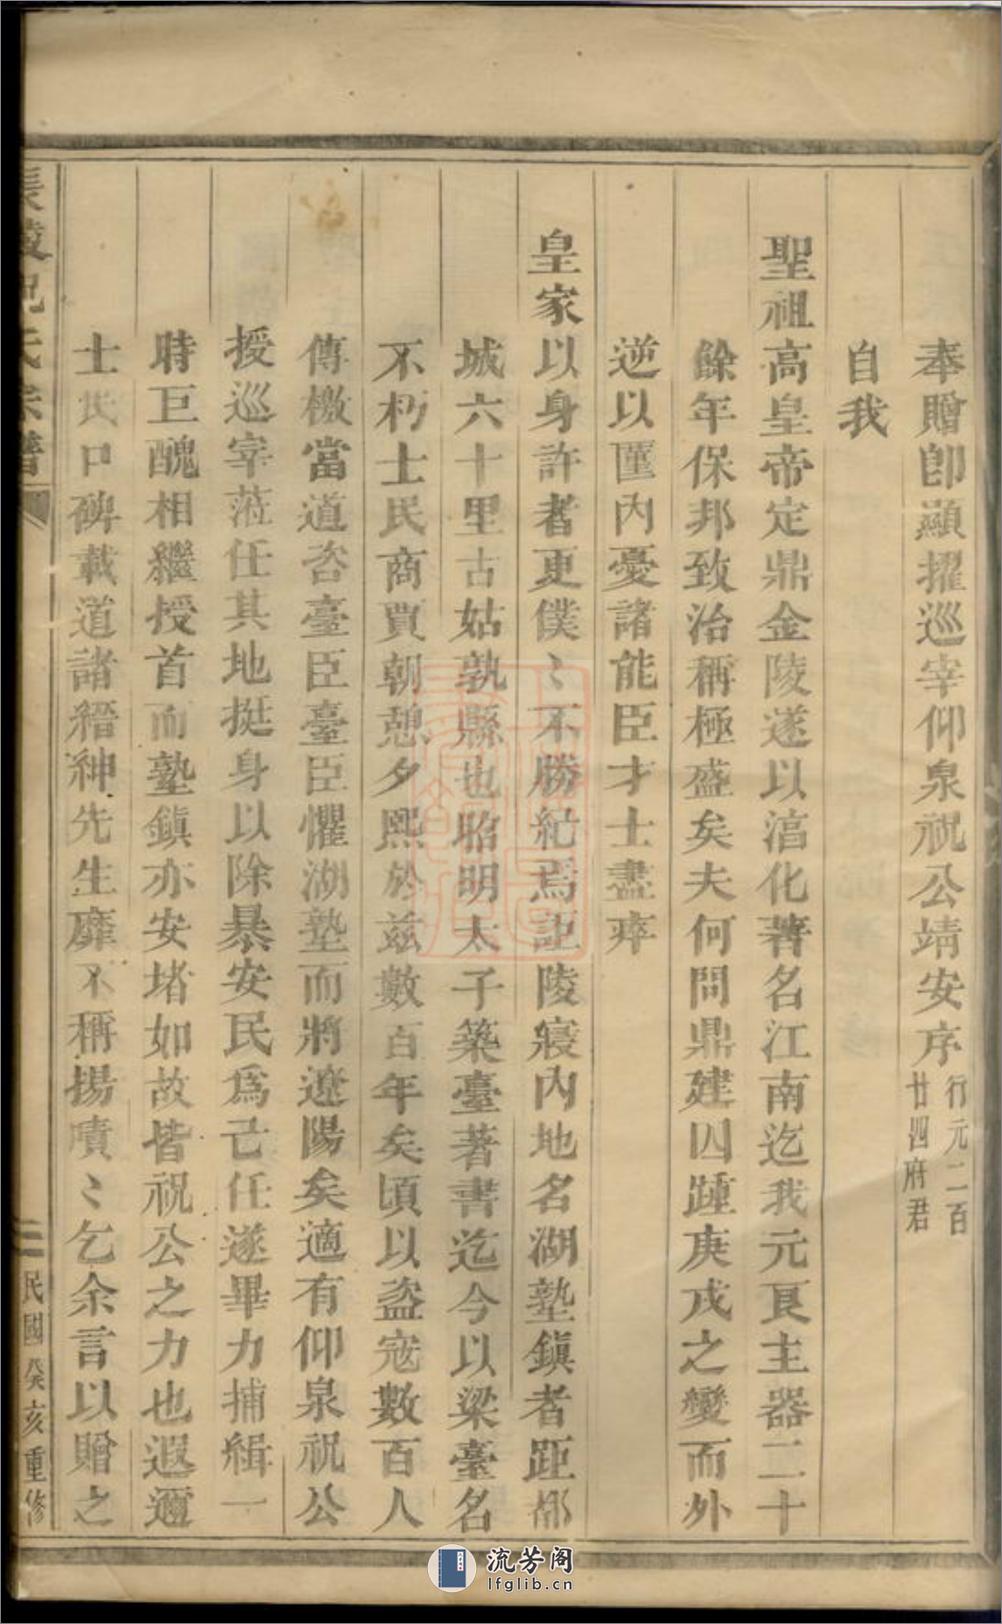 奉贈卽顯擢巡宰仰泉祝公靖安序行元二百廿四府君
自我
聖祖高皇帝定鼎金陵遂以湻化著名江南迄我元良主器二十
餘年保邦致治稱極盛矣夫何問鼎建囚踵庚戌之變而外
逆以匪內憂諸能臣才士盡瘁
皇家以身許者更僕〻不勝紀焉詎陵寢內地名湖塾鎮者距都
城六十里古姑孰縣也昭明太子築臺著書迄今以梁臺名
不朽士民商賈朝憩夕熙於兹數百年矣頃以盜寇數百人
傳檄當道咨臺臣臺臣懼湖塾而將遼陽矣適有仰泉祝公
授巡宰蒞任其地挺身以除暴安民爲己任遂畢力捕緝一
時巨醜相繼授首而塾鎮亦安堵如故皆祝公之力也遐邇
士民口碑載道諸縉紳先生靡不稱揚嘖〻乞余言以贈之
祝氏宗譜
二
民國癸亥重修
流芳阁
lfglib.cn